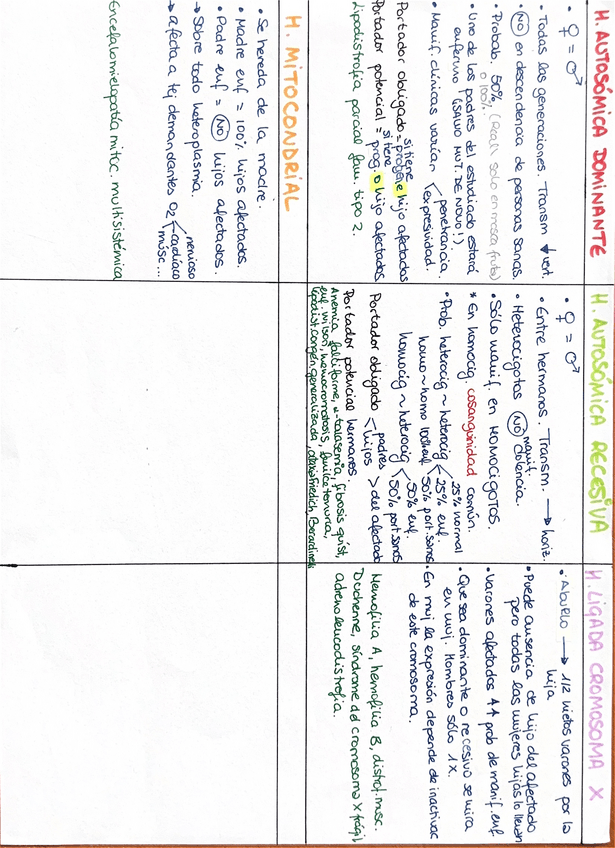 H. AUTOSÓMICA DOMINANTE
• ♀ = ♂
• Todas las generaciones. Transm ↓ vert.
• NO en descendencia de personas sanas.
• Probab. 50% (Real solo en mosca fruta)
o 100%.
• Uno de los padres del estudiado estará
enfermo (¡SALVO MUT. DE NOVO!)
• Manif. clínicas varían < penetrancia
expresividad.
Portador obligado = si tiene progen e hijo afectados
Portador potencial = si tiene prog. o hijo afectados
Lipodistrofia parcial fam. tipo 2.
H. AUTOSÓMICA RECESIVA
• ♀ = ♂
• Entre hermanos. Transm. → horiz.
• Heterocigotos NO manif. dolencia.
• Sólo manif. en HOMOCIGOTOS.
* En homocig. cosanguinidad común.
• Prob. heterocig ~ heterocig < 25% normal
25% enf.
50% port. sanos
homo ~ homo 100% enf.
homocig ~ heterocig < 50% enf.
50% port. sanos
Portador obligado < padres
hijos > del afectado
Portador potencial hermanos
Anemia falciforme, α-talasemia, fibrosis quíst,
enf. Wilson, hemocromatosis, fenilcetonuria,
lipodist. congén. generalizada, ataxia Friedich, Berardinelli
H. LIGADA CROMOSOMA X
• Abuelo → 1/2 nietos varones por la
hija
• Puede ausencia de hijo del afectado
pero todas las mujeres hijas lo llevan
• Varones afectados ↑↑ prob de manif. enf.
• Que sea dominante o recesivo se mira
en muj. Hombres sólo 1 X.
• En muj la expresión depende de inactivac
de este cromosoma.
Hemofilia A, hemofilia B, distrof. musc.
Duchenne, síndrome del cromosoma X frágil
adrenoleucodistrofia.
H. MITOCONDRIAL
• Se hereda de la madre.
• Madre enf = 100% hijos afectados.
• Padre enf = NO hijos afectados.
→ Sobre todo heteroplasmia.
→ afecta a tej demandantes O2 < nervioso
cardíaco
músc...
Encefalomielopatía mitoc. multisistémica